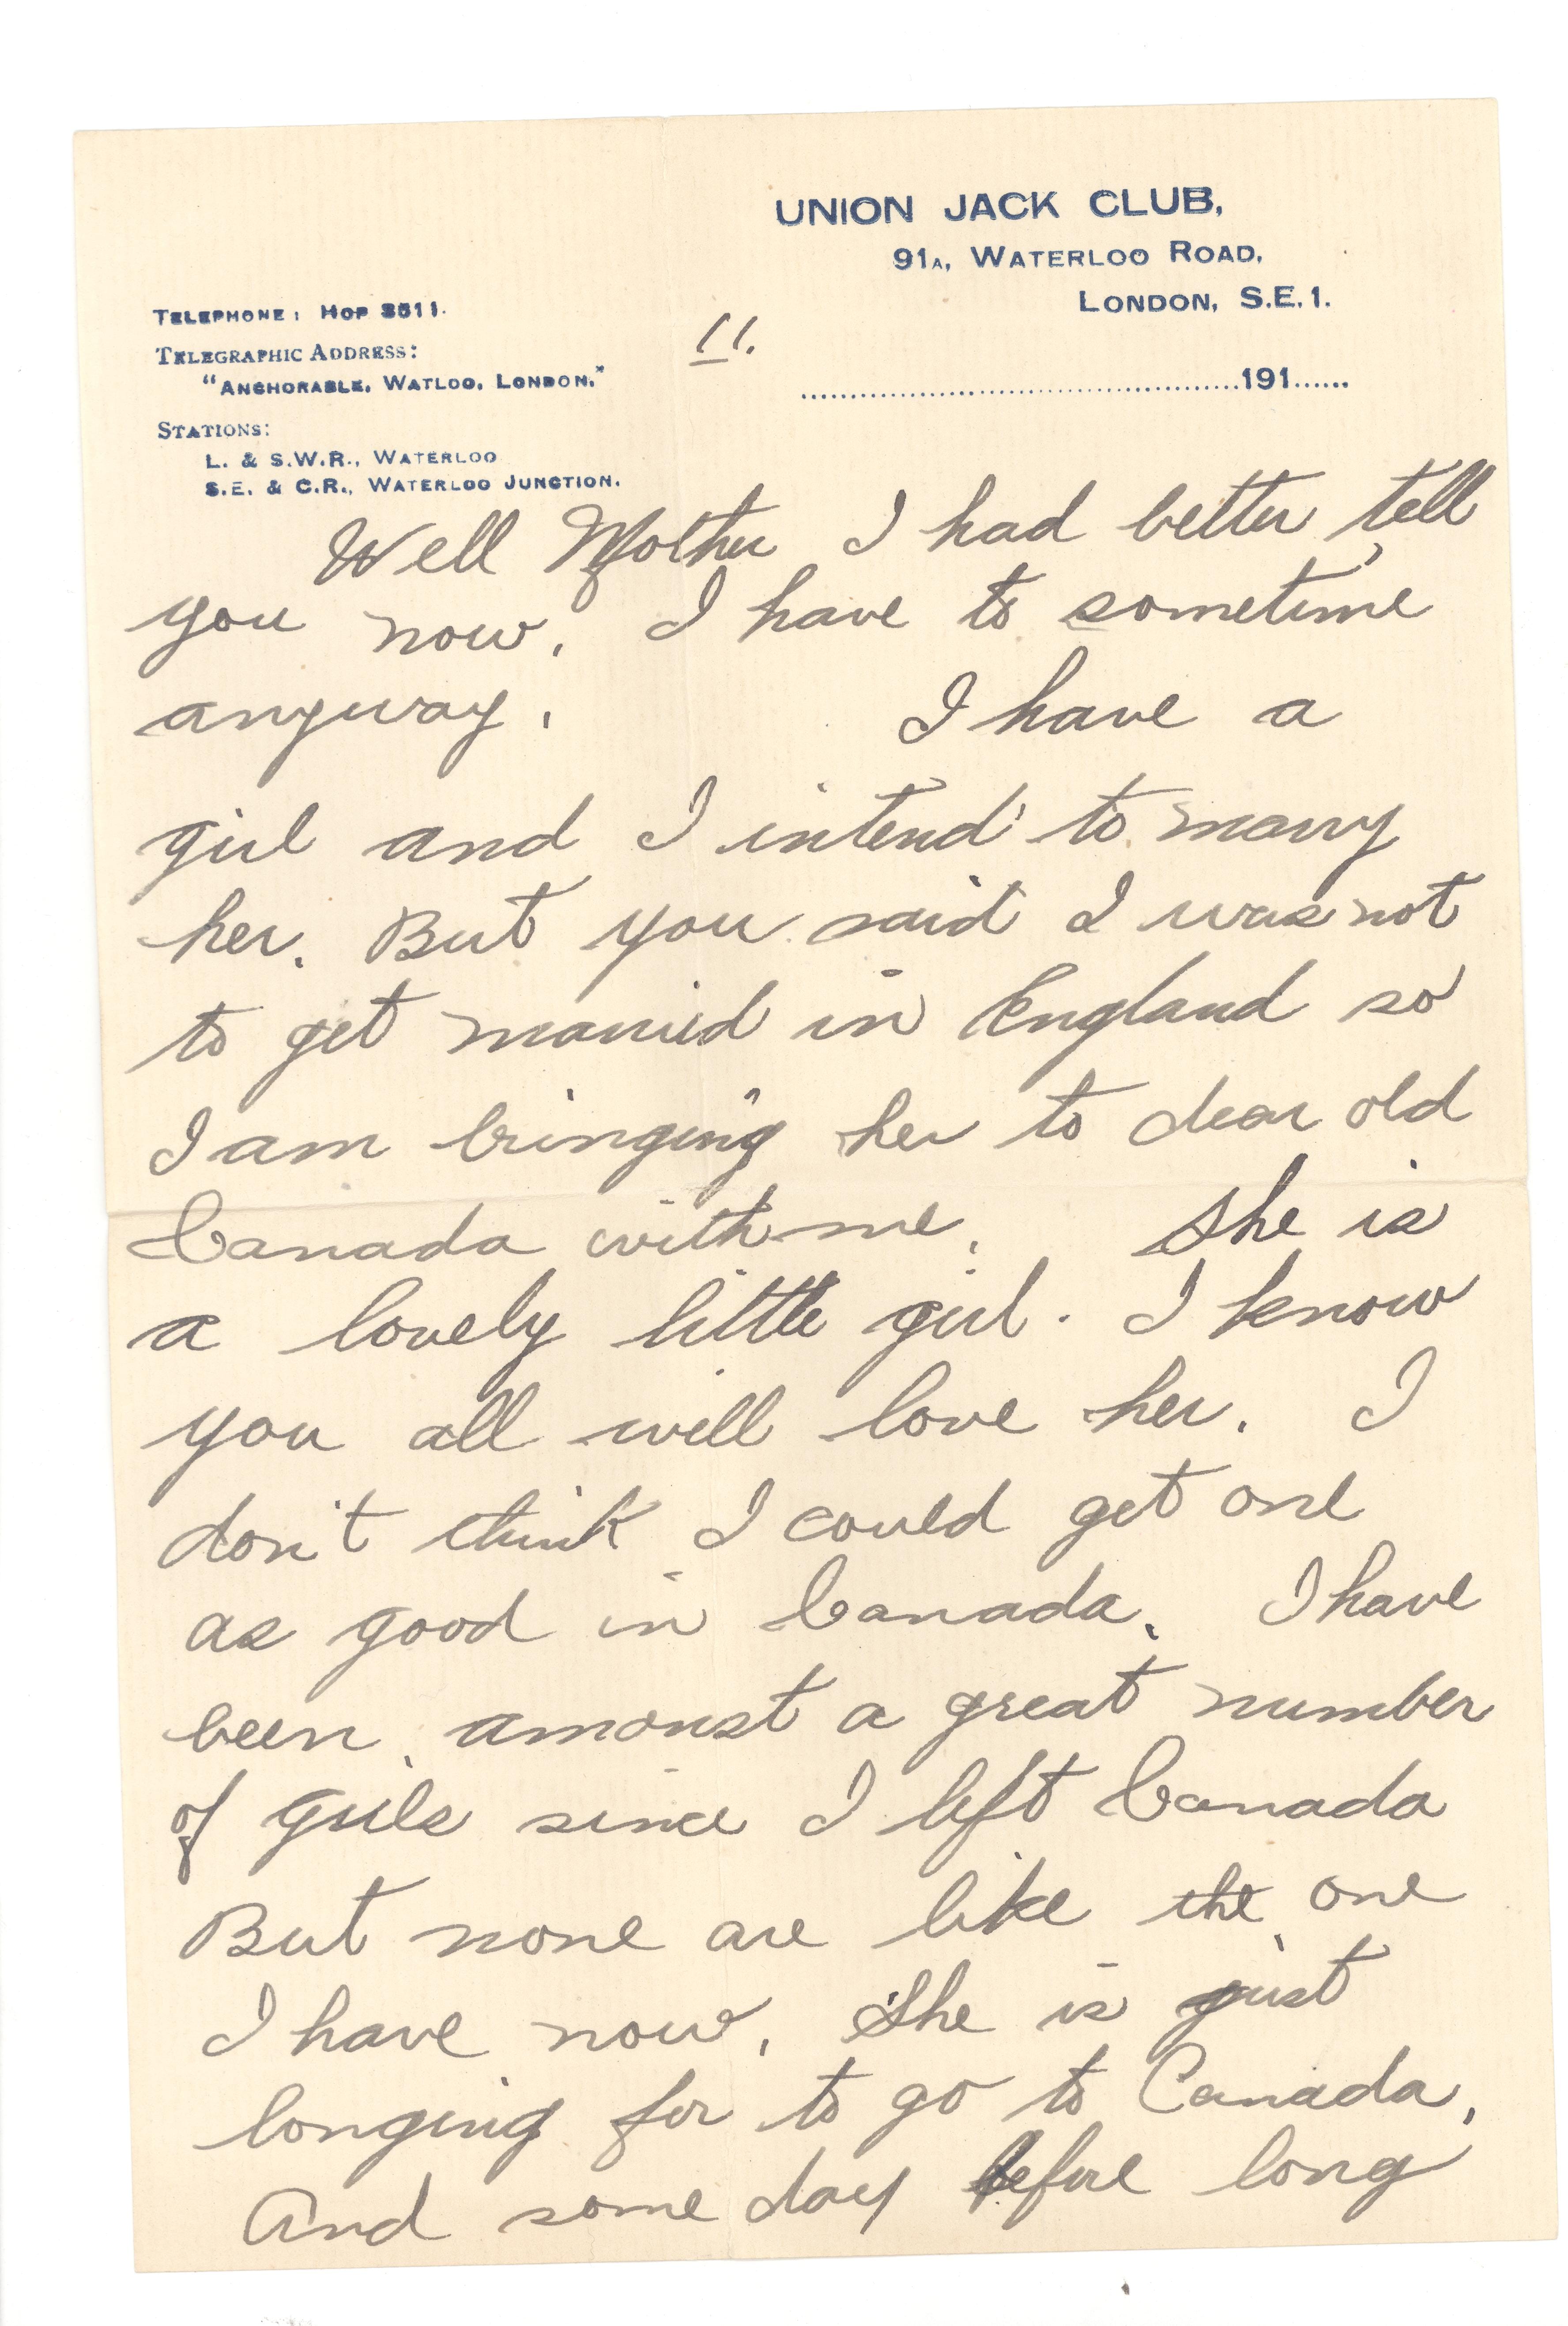 UNION JACK CLUB,
91A, WATERLOO ROAD,
LONDON, S.E.1.
TELEPHONE: HOP 3511.
TELEGRAPHIC ADDRESS:
"ANCHORABLE, WATLOO, LONDON."
STATIONS:
L. & S.W.R., WATERLOO
S.E. & C.R., WATERLOO JUNCTION.
11.
191
Well Mother I had better tell
you now. I have to sometime
anyway. I have a
girl and I intend to marry
her. But you said I was not
to get married in England so
I am bringing her to dear old
Canada with me. She is
a lovely little girl. I know
you all will love her. I
don't think I could get one
as good in Canada. I have
been amonst a great number
of girls since I left Canada
But none are like the one
I have now. She is just
longing for to go to Canada.
And some day before long